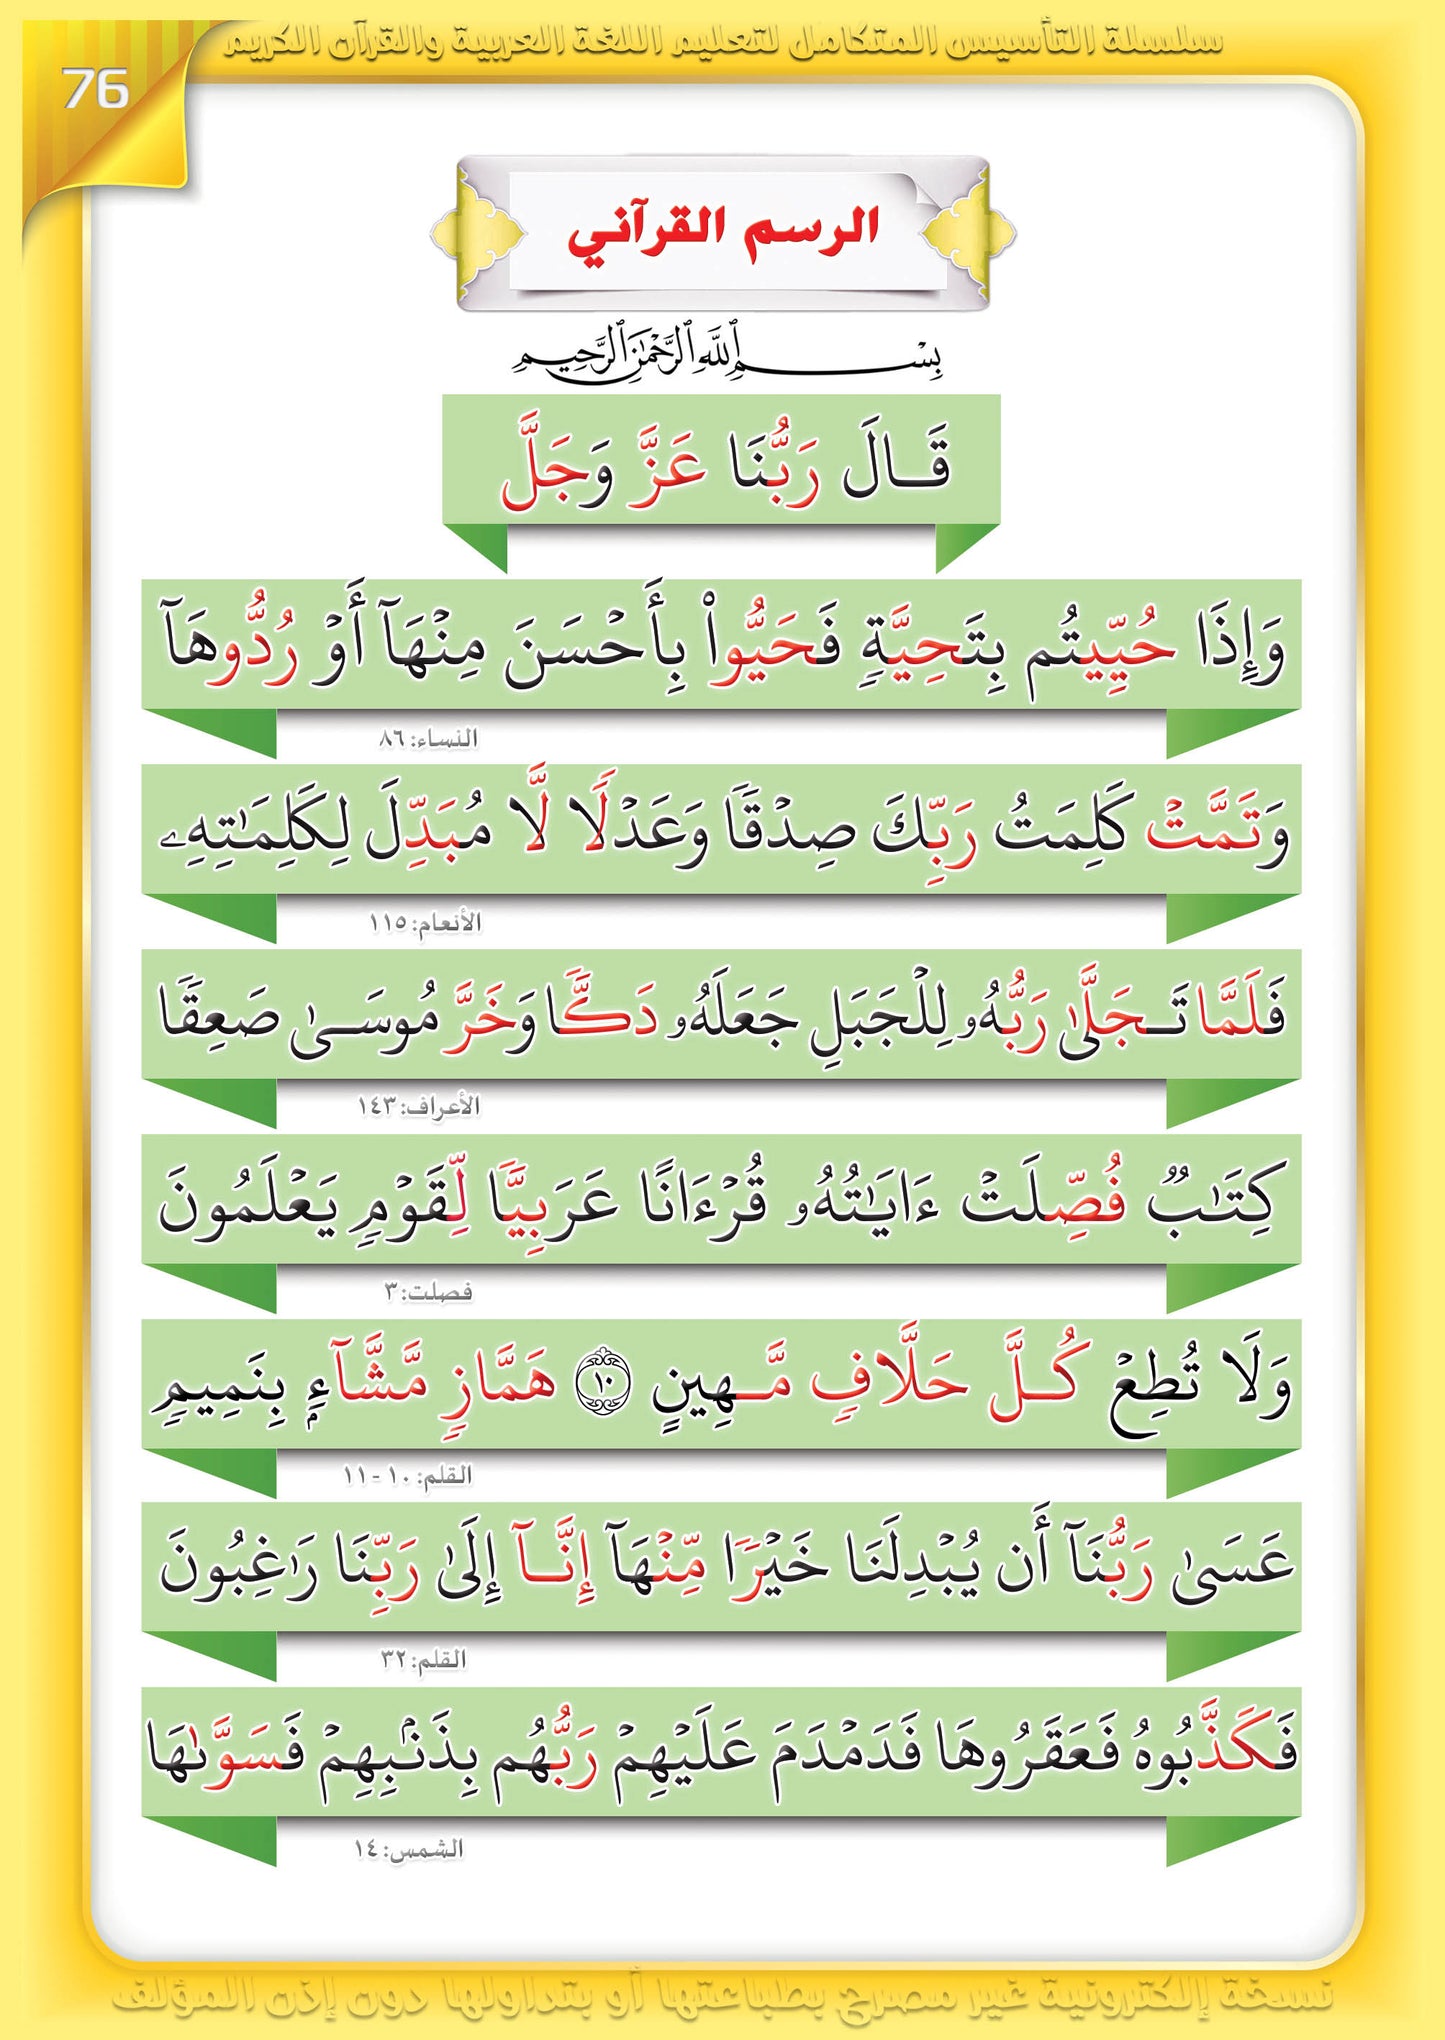 سلسلة التأسيس المتكامل لتعليم اللغة العربية والقرآن الكريم
76
الرسم القرآني
بِسْمِ ٱللَّهِ ٱلرَّحْمَٰنِ ٱلرَّحِيمِ
قَالَ رَبُّنَا عَزَّ وَجَلَّ
وَإِذَا حُيِّيتُم بِتَحِيَّةٍ فَحَيُّوا۟ بِأَحْسَنَ مِنْهَآ أَوْ رُدُّوهَآ
النساء: ٨٦
وَتَمَّتْ كَلِمَتُ رَبِّكَ صِدْقًا وَعَدْلًا لَّا مُبَدِّلَ لِكَلِمَٰتِهِۦ
الأنعام: ١١٥
فَلَمَّا تَجَلَّىٰ رَبُّهُۥ لِلْجَبَلِ جَعَلَهُۥ دَكًّا وَخَرَّ مُوسَىٰ صَعِقًا
الأعراف: ١٤٣
كِتَٰبٌ فُصِّلَتْ ءَايَٰتُهُۥ قُرْءَانًا عَرَبِيًّا لِّقَوْمٍ يَعْلَمُونَ
فصلت: ٣
وَلَا تُطِعْ كُلَّ حَلَّافٍ مَّهِينٍ ١٠ هَمَّازٍ مَّشَّآءٍۭ بِنَمِيمٍ
القلم: ١٠ - ١١
عَسَىٰ رَبُّنَآ أَن يُبْدِلَنَا خَيْرًا مِّنْهَآ إِنَّآ إِلَىٰ رَبِّنَا رَٰغِبُونَ
القلم: ٣٢
فَكَذَّبُوهُ فَعَقَرُوهَا فَدَمْدَمَ عَلَيْهِمْ رَبُّهُم بِذَنۢبِهِمْ فَسَوَّىٰهَا
الشمس: ١٤
نسخة إلكترونية غير مصرح بطباعتها أو بتداولها دون إذن المؤلف